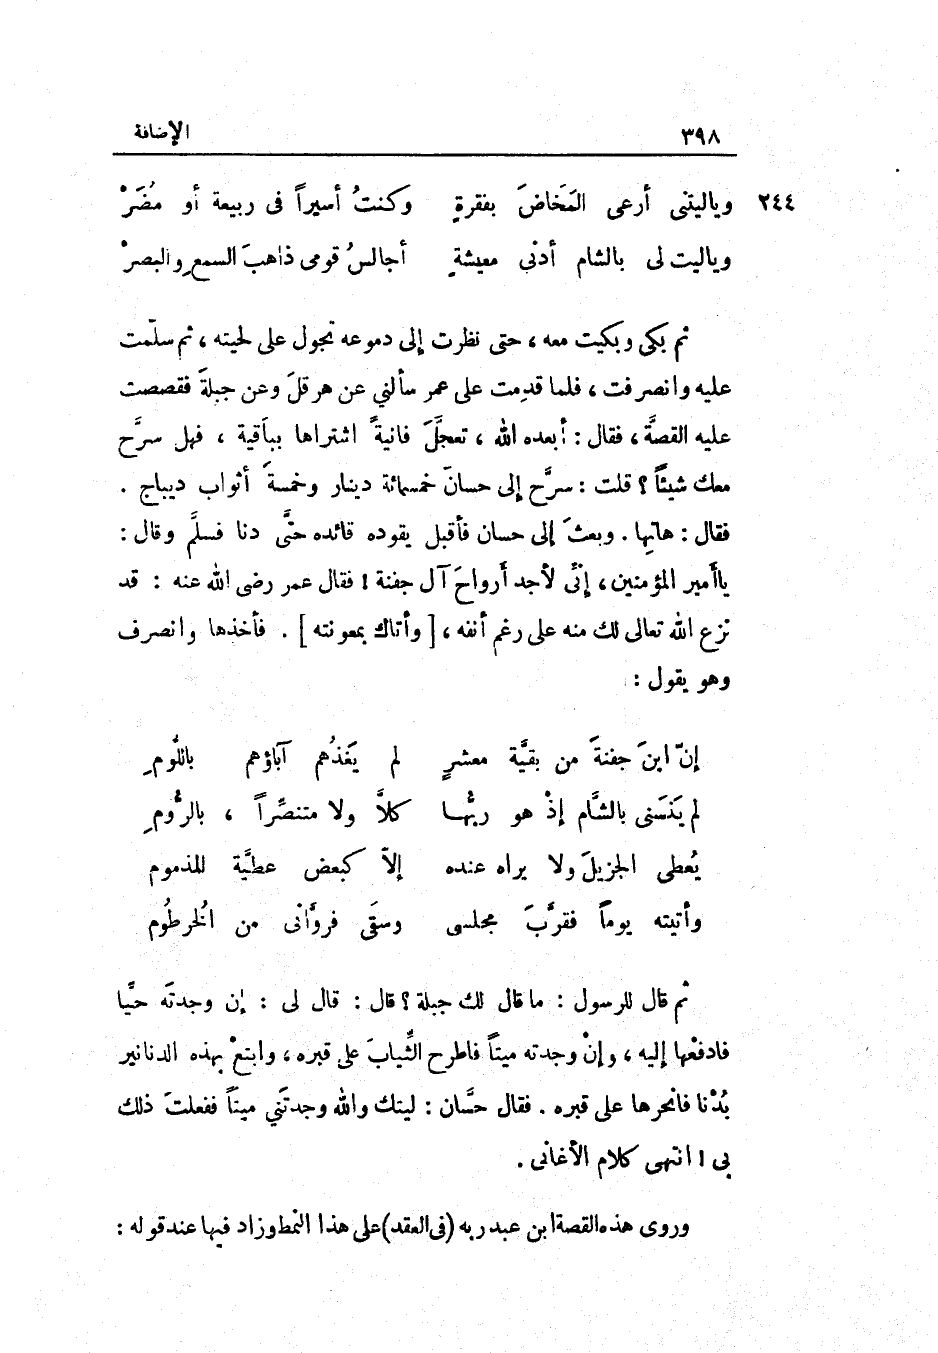 ٣٩٨ الإضافة
٢٤٤ وياليتنى أرعى المَخَاضَ بفقرةٍ وكنتُ أسيراً فى ربيعة أو مُضَرْ
وياليت لى بالشام أدنْى معيشةٍ أجالسُ قومى ذاهبَ السمعِ والبصرْ
ثم بكى وبكيت معه ، حتى نظرت إلى دموعه تجول على لحيته ، ثم سلّمت
عليه وانصرفت ، فلما قدِمت على عمر سألني عن هرقلَ وعن جبلةَ فقصصت
عليه القصَّة ، فقال : أبعده الله ، تعجَّلَ فانيةً اشتراها بباقية ، فهل سرَّح
معك شيئاً ؟ قلت : سرَّح إلى حسانَ خمسمائة دينار وخمسةَ أثواب ديباج .
فقال : هاتِها . وبعثَ إلى حسان فأقبل يقوده قائده حتَّى دنا فسلَّم وقال :
ياأمير المؤمنين ، إنِّى لأجد أرواحَ آل جفنة ! فقال عمر رضى الله عنه : قد
نزع الله تعالى لك منه على رغم أنفه ، [ وأتاك بمعونته ] . فأخذها وانصرف
وهو يقول :
إنّ ابنَ جفنةَ من بقيَّة معشرٍ لم يَغذُهم آباؤهم باللُّومِ
لم يَنسَنى بالشَّام إذْ هو ربُّها كلاَّ ولا متنصِّراً ، بالرُّومِ
يُعطى الجزيلَ ولا يراه عنده إلاّ كبعض عطيَّة المذموم
وأتيته يوماً فقرَّبَ مجلسى وسقَى فروَّانى من الخُرطُوم
ثم قال للرسول : ما قال لك جبلة ؟ قال : قال لى : إن وجدتَه حيًّا
فادفعْها إليه ، وإنْ وجدته ميتاً فاطرح الثِّيابَ على قبره ، وابتعْ بهذه الدنانير
بُدْنا فانحرها على قبره . فقال حسَّان : ليتك والله وجدتَني ميتاً ففعلتَ ذلك
بى ! انتهى كلام الأغانى .
وروى هذه القصة ابن عبد ربه (فى العقد) على هذا النمط وزاد فيها عند قوله :